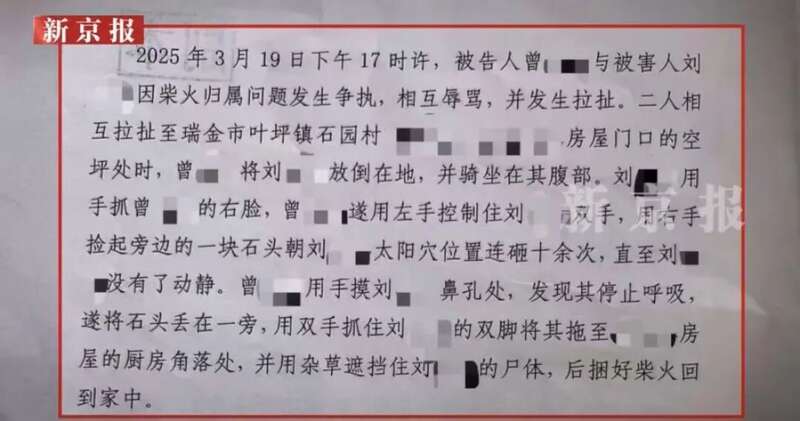 新京报
2025年3月19日下午17时许，被告人曾 与被害人刘
因柴火归属问题发生争执，相互辱骂，并发生拉扯。二人相
互拉扯至瑞金市叶坪镇石园村 房屋门口的空
坪处时，曾 将刘 放倒在地，并骑坐在其腹部。刘 用
手抓曾 的右脸，曾 遂用左手控制住刘 双手，用右手
捡起旁边的一块石头朝刘 太阳穴位置连砸十余次，直至刘
没有了动静。曾 用手摸刘 鼻孔处，发现其停止呼吸，
遂将石头丢在一旁，用双手抓住刘 的双脚将其拖至 房
屋的厨房角落处，并用杂草遮挡住刘 的尸体，后捆好柴火回
到家中。
新京报